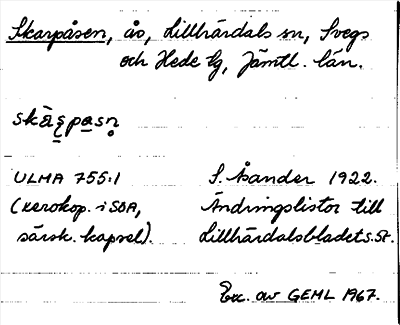 Skarpåsen, ås, Lillhärdals sn, Svegs
och Hede tg, Jämtl. län.
skàʂpasn̥
ULMA 755:1 S. Åsander 1922.
(xerokop. i SOA, Ändringslistor till
särsk. kapsel). Lillhärdalsbladet s. 51.
Exc. av GEML 1967.